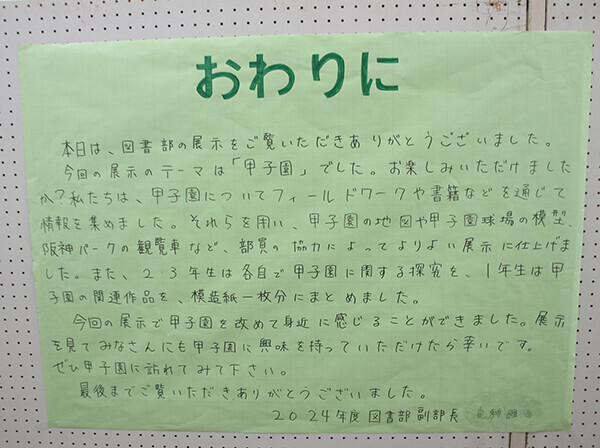 おわりに
本日は、図書部の展示をご覧いただきありがとうございました。
今回の展示のテーマは「甲子園」でした。お楽しみいただけました
か?私たちは、甲子園についてフィールドワークや書籍などを通じて
情報を集めました。それらを用い、甲子園の地図や甲子園球場の模型、
阪神パークの観覧車など、部員の協力によってよりよい展示に仕上げま
した。また、2・3年生は各自で甲子園に関する探究を、1年生は甲
子園の関連作品を、模造紙一枚分にまとめました。
今回の展示で甲子園を改めて身近に感じることができました。展示
を見てみなさんにも甲子園に興味を持っていただけたら幸いです。
ぜひ甲子園に訪れてみて下さい。
最後までご覧いただきありがとうございました。
2024年度 図書部副部長